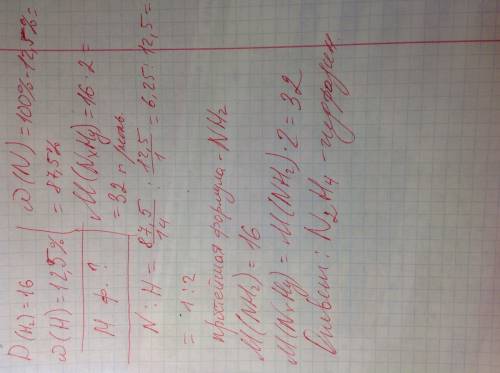 D(H₂)=16 | ω(N)=100%-12,5%=
ω(H)=12,5% | =87,5%
М.ф.? | M(NxHy)=16·2=
=32 г/моль
N:H = 87,5/14 : 12,5/1 = 6,25:12,5=
= 1:2
простейшая формула - NH₂
M(NH₂)=16
M(NxHy)=M(NH₂)·2=32
Ответ: N₂H₄ - гидразин